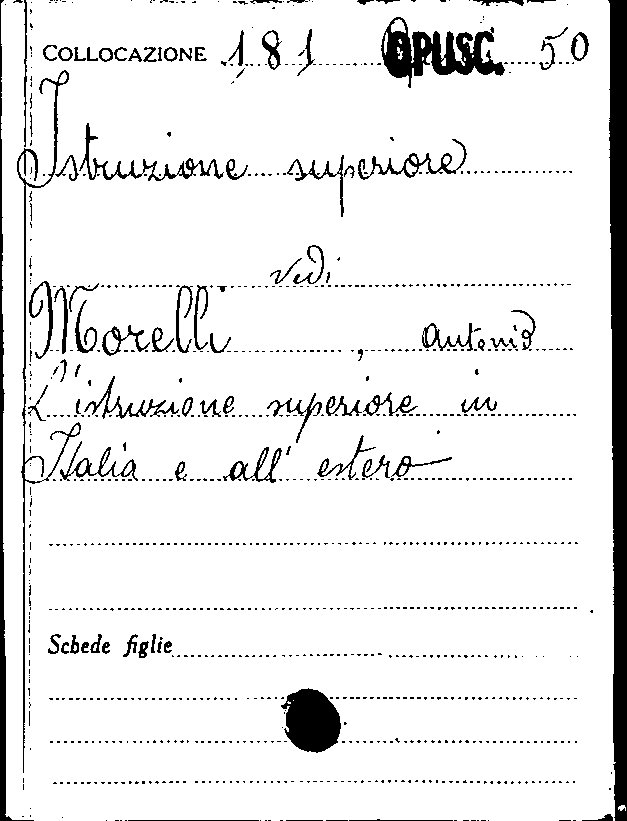 COLLOCAZIONE 181 OPUSC. 50
Istruzione superiore
vedi
Morelli, Antonio
L'istruzione superiore in
Italia e all' estero
Schede figlie